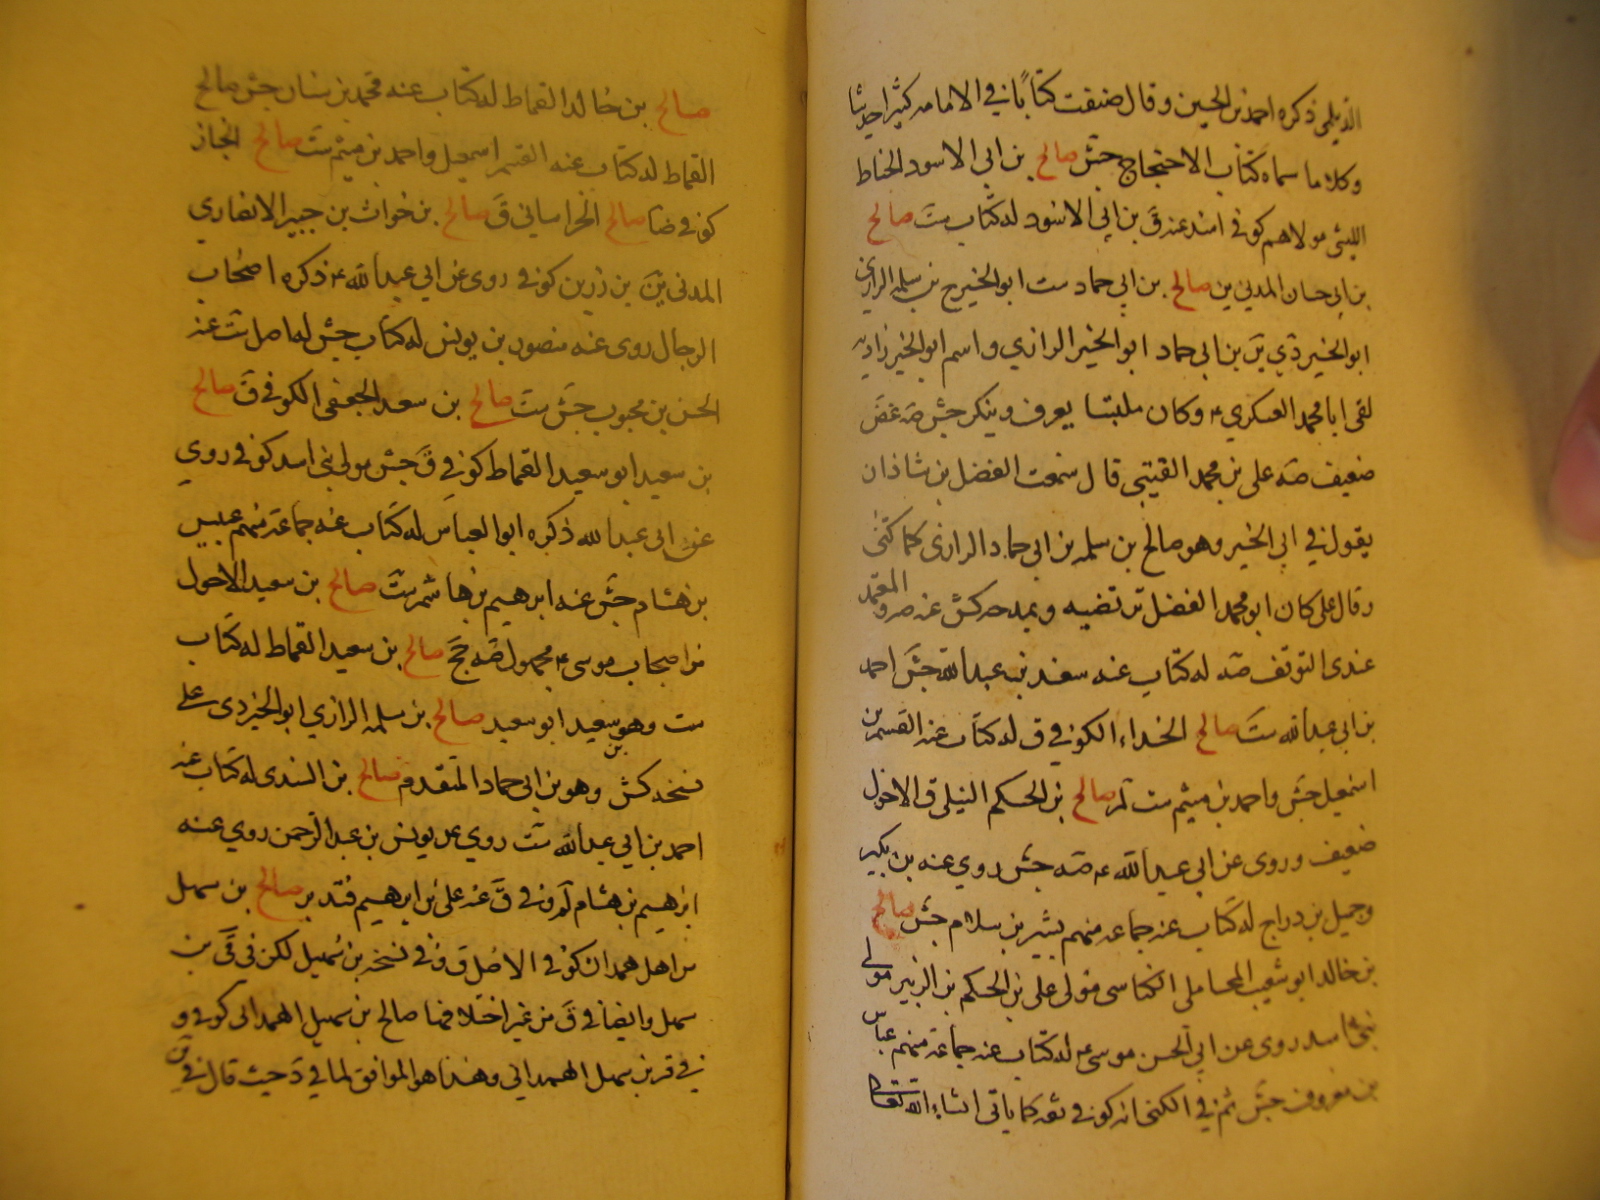 الديلمي ذكره احمد بن الحسين وقال صنفت كتابا في الامامه كثيرا حديثا
وكلاما سماه كتاب الاحتجاج جش صالح بن ابي الاسود الخياط
الليثي مولاهم كوفي اسند عنه ق بن ابي الاسود له كتاب ست صالح
بن ابي حسان المدني ين صالح بن ابي حماد ست ابو الخير ج بن سلمه الرازي
ابو الخير دي ين بن ابي حماد ابو الخير الرازي واسم ابو الخير زاديه
لقى ابا محمد العسكري ع وكان ملبسا يعرف وينكر جش صه غض
ضعيف صه على بن محمد القتيبي قال سمعت الفضل بن شاذان
يقول في ابي الخير وهو صالح بن سلمه بن ابي حماد الرازي كما كنى
وقال على كان ابو محمد الفضل يرتضيه ويمدحه كش عنه صه و المعتمد
عندى التوقف صه له كتاب عنه سعد بن عبد الله جش احمد
بن ابي عبد الله ست صالح الحذاء الكوفي ق له كتاب عنه القسم بن
اسمعيل جش واحمد بن ميثم ست لم صالح بن الحكم النيلي ق الاحول
ضعيف وروى عن ابي عبد الله ع صه جش روي عنه بن بكير
وجميل بن دراج له كتاب عنه جماعه منهم بشر بن سلام جش صالح
بن خالد ابو شعيب المحاملي الكناسي مولى على بن الحكم بن الزبير مولى
بني اسد روى عن ابي الحسن موسى ع له كتاب عنه جماعة منهم عباس
بن معروف جش ثم في الكنى انه كوفي ثقه كما ياتي انشاء الله تعالى
صالح بن خالد القماط له كتاب عنه محمد بن سنان جش صالح
القماط له كتاب عنه القسم اسمعيل واحمد بن ميثم ست صالح الخباز
كوفي ضا صالح الخراساني ق صالح بن خوات بن جبير الانصاري
المدني ين بن رزين كوفي روى عن ابي عبد الله ع ذكره اصحاب
الرجال روى عنه منصور بن يونس له كتاب جش له اصل ست عنه
الحسن بن محبوب جش ست صالح بن سعد الجعفي الكوفي ق صالح
بن سعيد ابو سعيد القماط كوفي ق جش مولى بني اسد كوفي روي
عن ابي عبد الله ذكره ابو العباس له كتاب عنه جماعة منهم عبيس
بن هشام جش عنه ابرهيم بن هاشم ست صالح بن سعيد الاحول
من اصحاب موسى ع مجهول صه جخ صالح بن سعيد القماط له كتاب
ست وهو بن سعيد ابو سعيد صالح بن سلمه الرازي ابو الخير دى على
نسخه كش وهو بن ابي حماد المتقدم صالح بن السندي له كتاب عنه
احمد بن ابي عبد الله ست روي عن يونس بن عبد الرحمن روي عنه
ابرهيم بن هشام لم وفي ق عنه على بن ابرهيم فتدبر صالح بن سهل
من اهل همدان كوفي الاصل ق وفي نسخه بن سهيل لكن في قى بن
سهل وايضا في ق من غير اختلاف فيها صالح بن سهيل الهمداني كوفي و
في قر بن سهل الهمداني وهذا هو الموافق لما في د حيث قال في ق